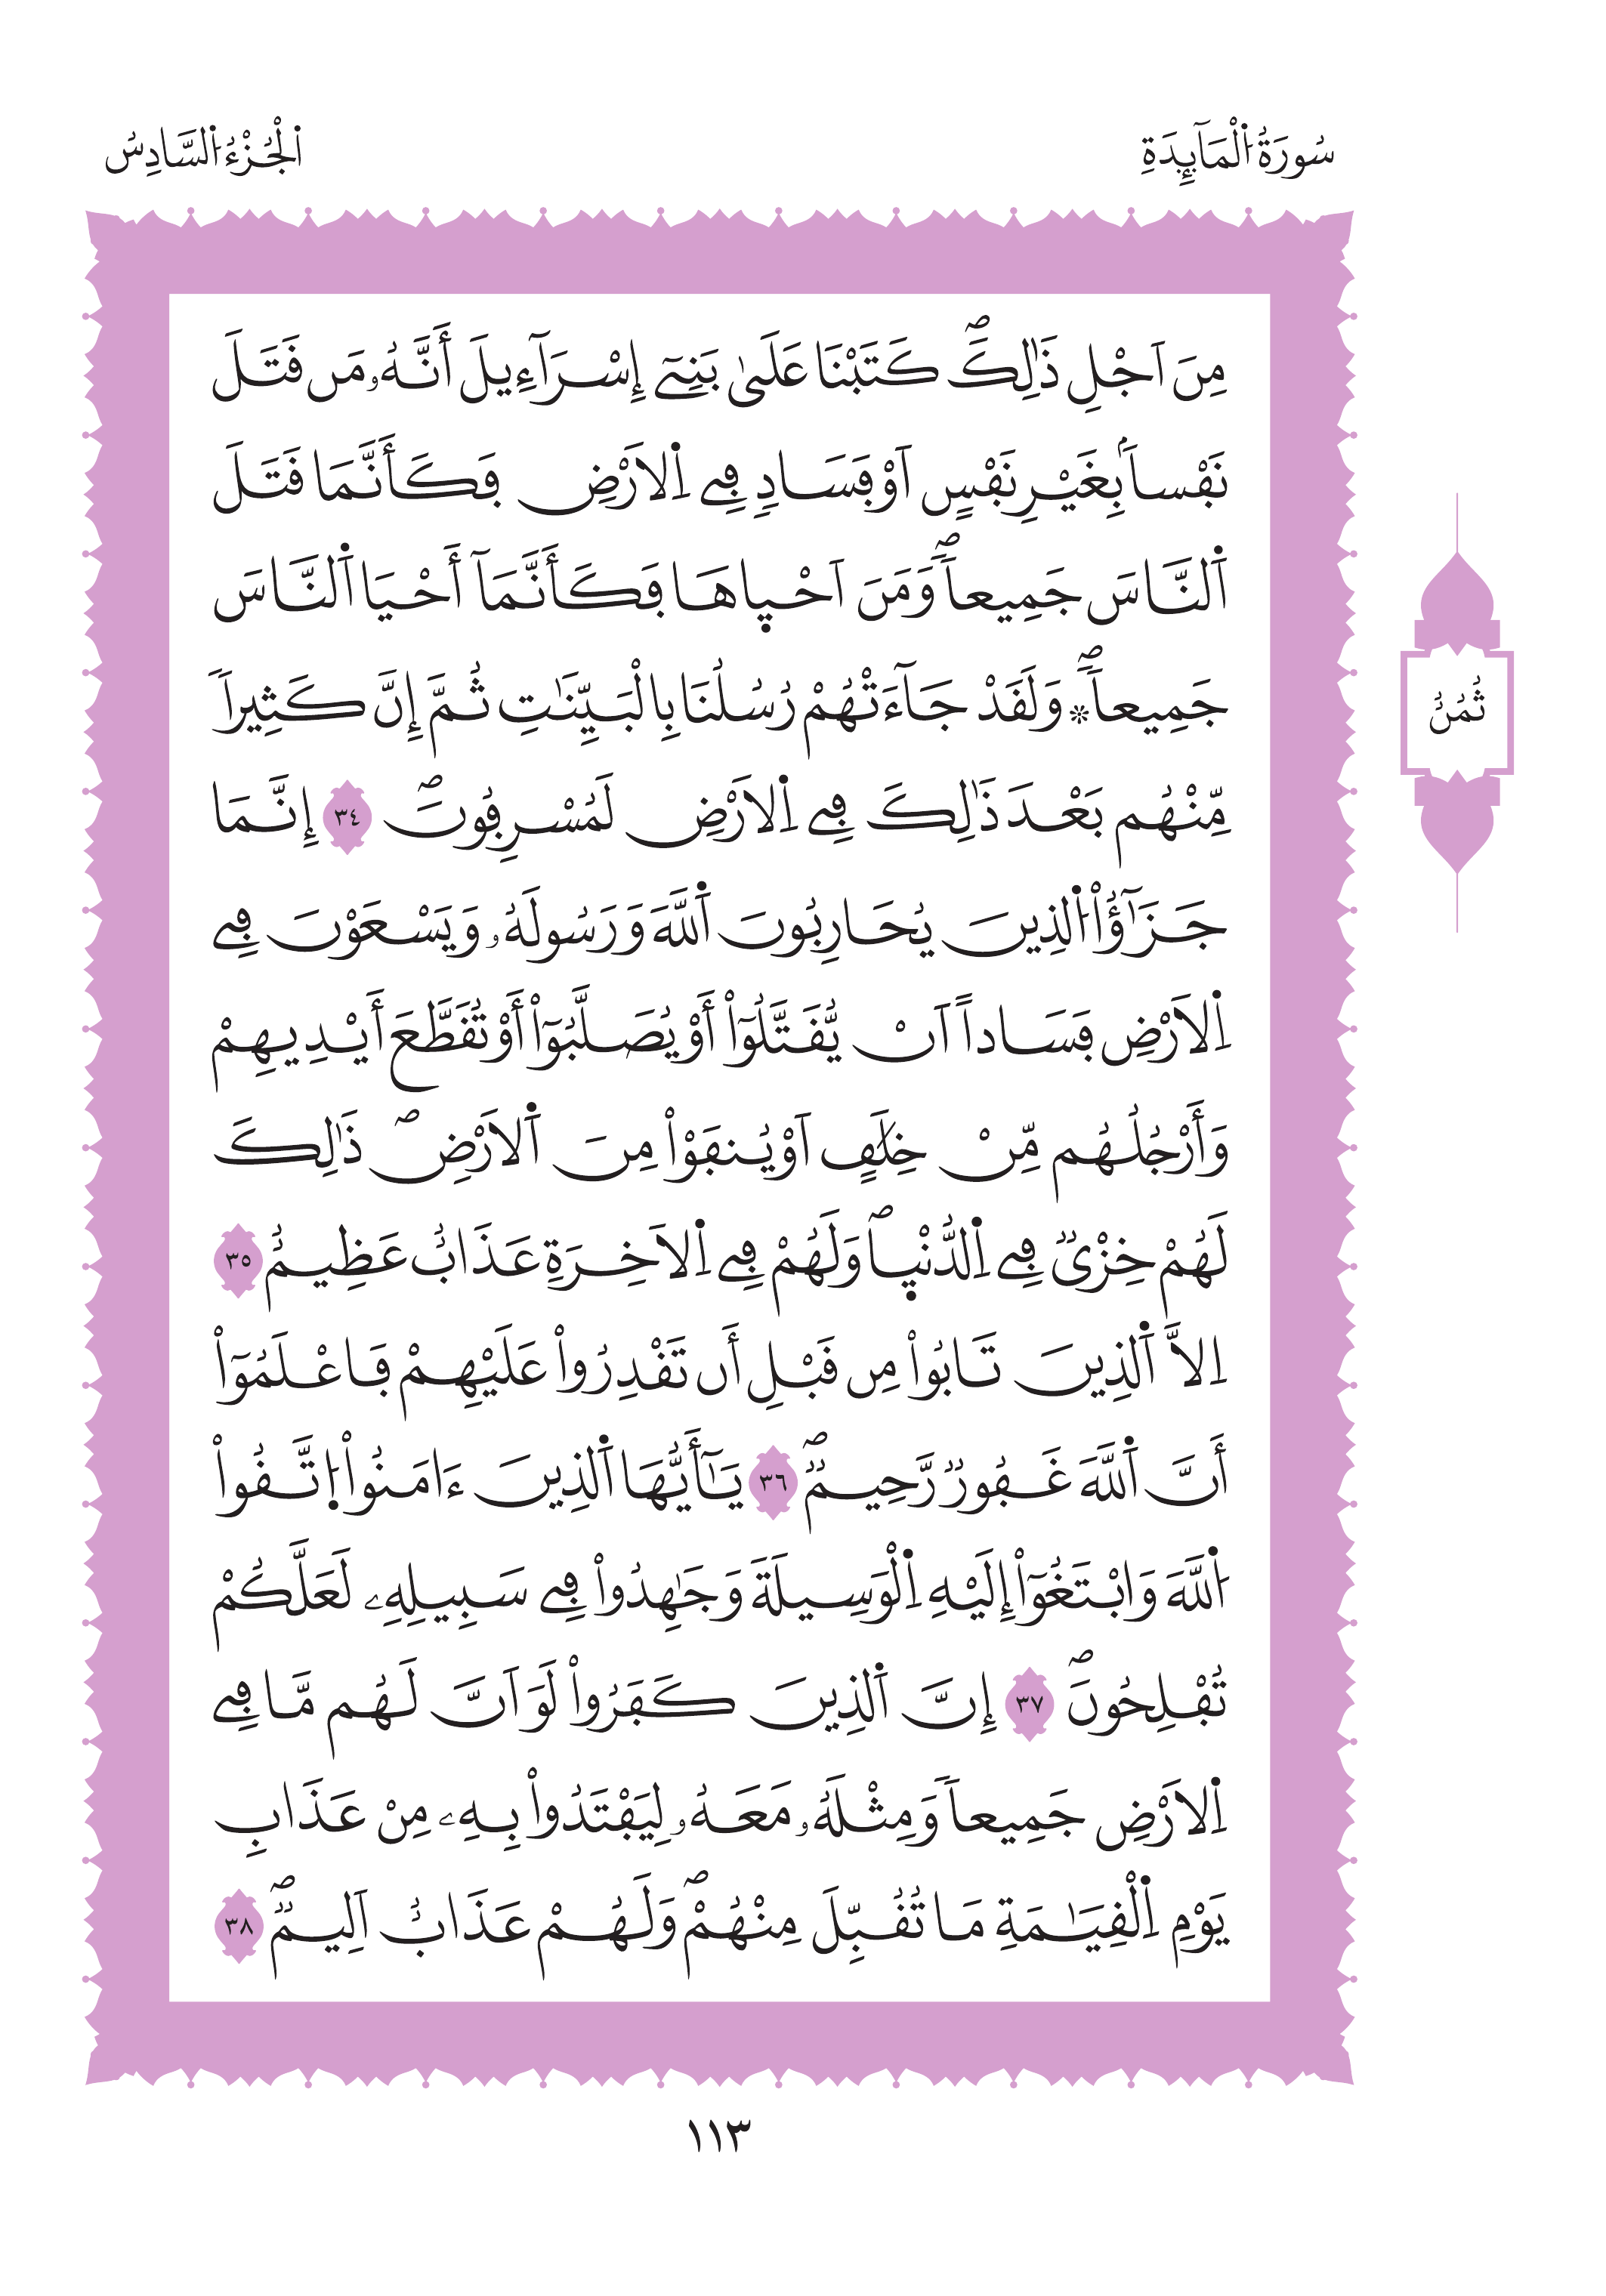 سُورَةُ اُ۬لْمَآئِدَةِ
اَ۬لْجُزْءُ اُ۬لسَّادِسُ
مِنَ اَجْلِ ذَٰلِكَۖ كَتَبْنَا عَلَىٰ بَنِےٓ إِسْرَآءِيلَ أَنَّهُۥ مَن قَتَلَ
نَفْساَۢ بِغَيْرِ نَفْسٍ اَوْ فَسَادٍ فِے اِ۬لَارْضِ فَكَأَنَّمَا قَتَلَ
اَ۬لنَّاسَ جَمِيعاٗۖ وَمَنَ اَحْي۪اهَا فَكَأَنَّمَآ أَحْيَا اَ۬لنَّاسَ
جَمِيعاٗۖ ۞ وَلَقَدْ جَآءَتْهُمْ رُسُلُنَا بِالْبَيِّنَٰتِ ثُمَّ إِنَّ كَثِيراٗ
مِّنْهُم بَعْدَ ذَٰلِكَ فِے اِ۬لَارْضِ لَمُسْرِفُونَۖ ٣٤ إِنَّمَا
جَزَٰٓؤُاْ اُ۬لذِينَ يُحَارِبُونَ اَ۬للَّهَ وَرَسُولَهُۥ وَيَسْعَوْنَ فِے
اِ۬لَارْضِ فَسَاداً اَنْ يُّقَتَّلُوٓاْ أَوْ يُصَلَّبُوٓاْ أَوْ تُقَطَّعَ أَيْدِيهِمْ
وَأَرْجُلُهُم مِّنْ خِلَٰفٍ اَوْ يُنفَوْاْ مِنَ اَ۬لَارْضِۖ ذَٰلِكَ
لَهُمْ خِزْيٞ فِے اِ۬لدُّنْي۪اۖ وَلَهُمْ فِے اِ۬لَاخِرَةِ عَذَابٌ عَظِيمٌ ٣٥
اِلَّا اَ۬لذِينَ تَابُواْ مِن قَبْلِ أَن تَقْدِرُواْ عَلَيْهِمْ فَاعْلَمُوٓاْ
أَنَّ اَ۬للَّهَ غَفُورٞ رَّحِيمٞۖ ٣٦ يَٰٓأَيُّهَا اَ۬لذِينَ ءَامَنُواْ اُ۪تَّقُواْ
اُ۬للَّهَ وَابْتَغُوٓاْ إِلَيْهِ اِ۬لْوَسِيلَةَ وَجَٰهِدُواْ فِے سَبِيلِهِۦ لَعَلَّكُمْ
تُفْلِحُونَۖ ٣٧ إِنَّ اَ۬لذِينَ كَفَرُواْ لَوَ اَنَّ لَهُم مَّا فِے
اِ۬لَارْضِ جَمِيعاٗ وَمِثْلَهُۥ مَعَهُۥ لِيَفْتَدُواْ بِهِۦ مِنْ عَذَابِ
يَوْمِ اِ۬لْقِيَٰمَةِ مَا تُقُبِّلَ مِنْهُمْۖ وَلَهُمْ عَذَابٌ اَلِيمٞۖ ٣٨
ثُمُنٌ
١١٣